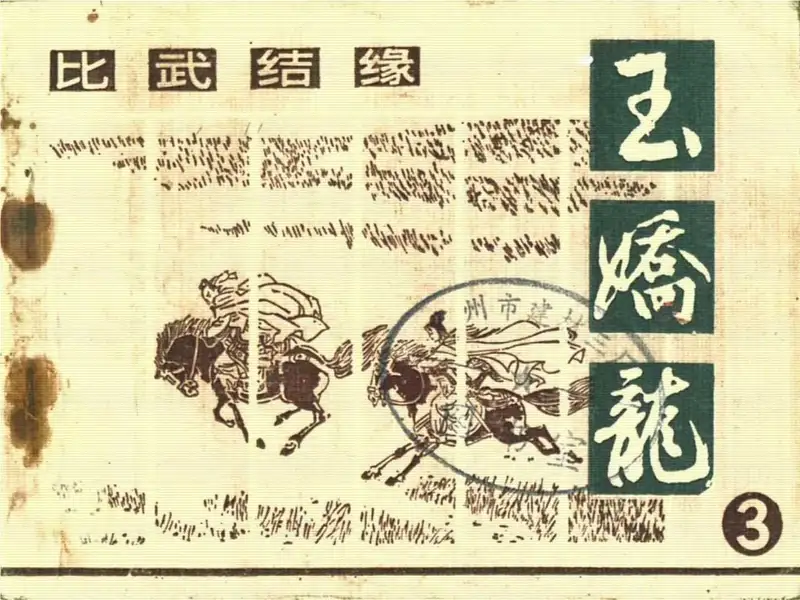 比武结缘
玉
嬌
龍
州市建
3